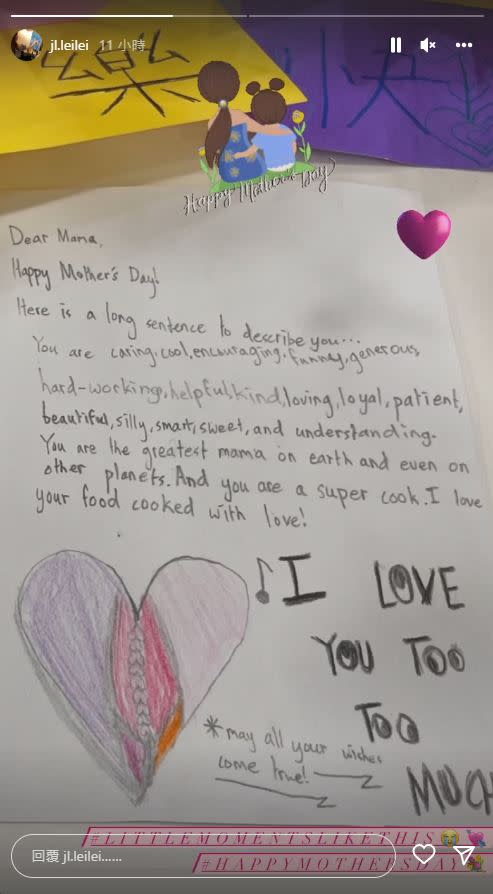 jl.leilei 11 小時
樂 快
Happy Mother's Day
Dear Mama,
Happy Mother's Day!
Here is a long sentence to describe you...
You are caring, cool, encouraging, funney, generous,
hard-working, helpful, kind, loving, loyal, patient,
beautiful, silly, smart, sweet, and understanding.
You are the greatest mama on earth and even on
other planets. And you are a super cook. I love
your food cooked with love!
♪I LOVE
YOU TOO
TOO
MUCH
*may all your wishes
come true!
#LITTLEMOMENTSLIKETHIS😭💘
#HAPPYMOTHERSDAY👩‍👧
回覆 jl.leilei......